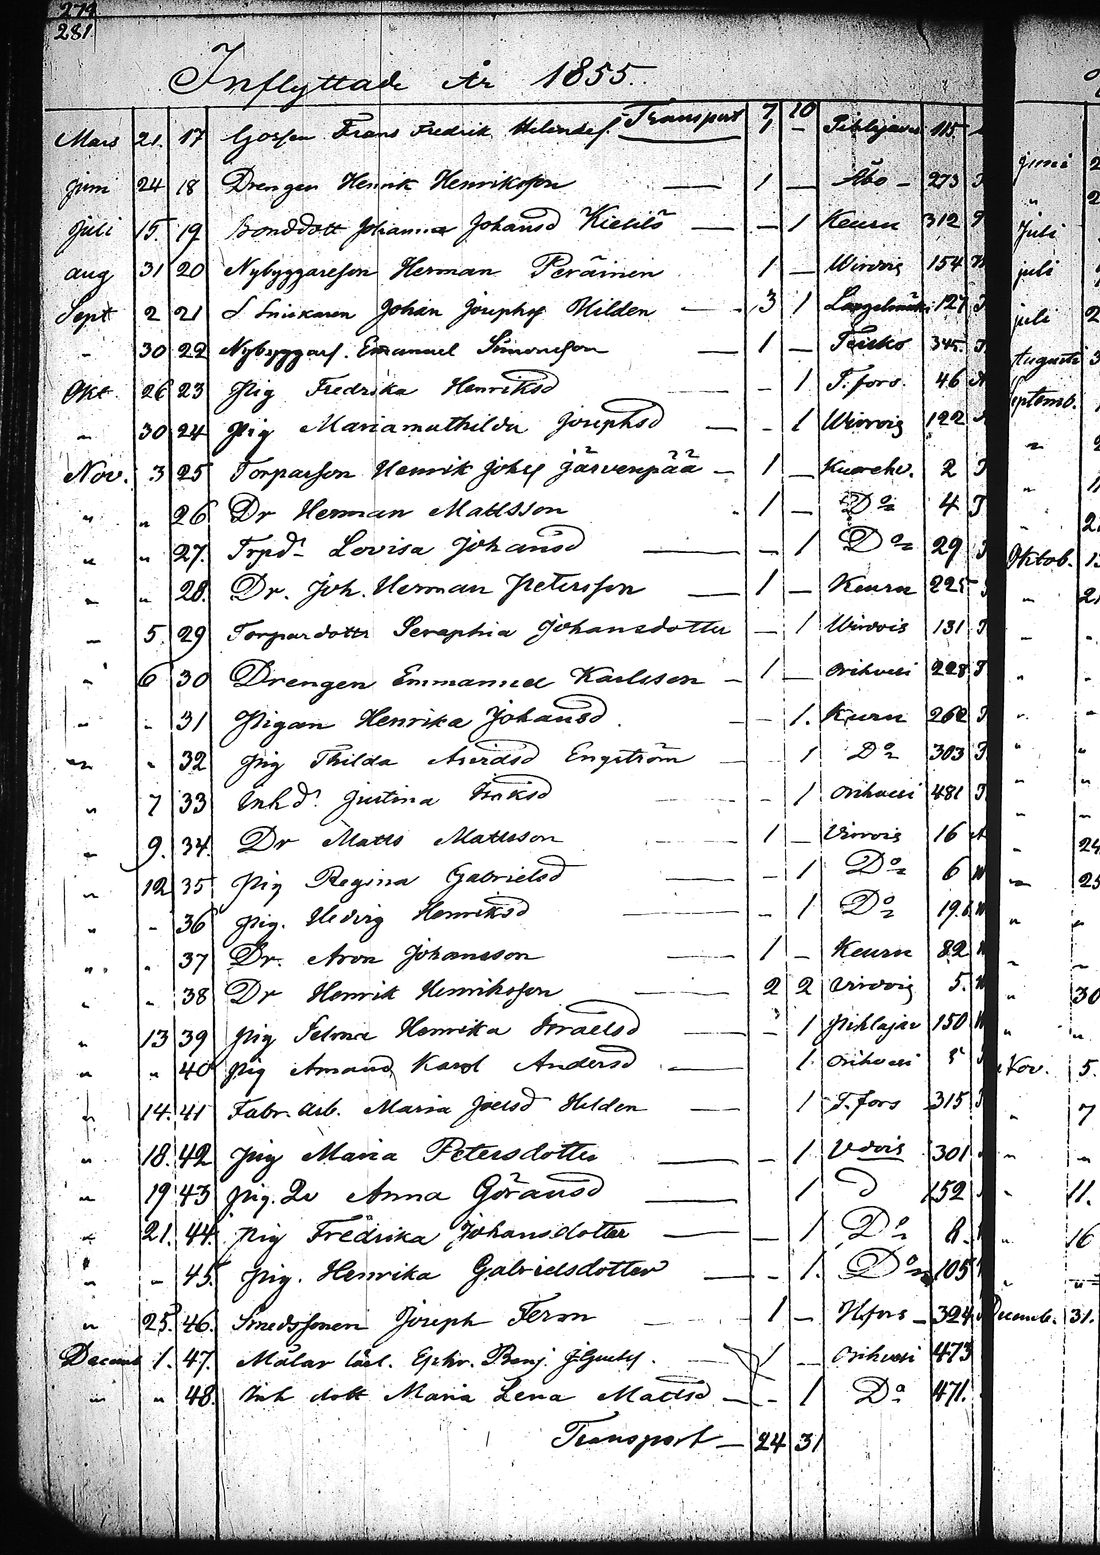 279
281
Inflyttade År 1855.
Transport 7 10
Mars 21. 17 Gossen Frans Fredrik 1 — 115
Juni 24 18 Drengen Henrik Henriksson — 1 — Åbo — 273
Juli 15. 19 Bonddott Johanna Johansd Kielilö — — 1 Keuru 312
Aug 31 20 Nybyggareson Herman Peräinen 1 — Wirdois 154
Sept 2 21 Johan Josephss Hilden — 3 1 127
" 30 22 Nybyggares. Emanuel Simonsson — 1 — Teisko 345.
Okt. 26 23 Pig Fredrika Henriksd — - 1 T.fors. 46
" 30 24 Pig Mariamathilda Josephsd — - 1 Wirdois 122
Nov. 3 25 Torparson Henrik Johss Järvenpää — 1 — Kuorehv. 2
" " 26 Dr Herman Mattsson 1 — Do 4
" " 27. Trpd. Lovisa Johansd — — 1 Do 29
" " 28. Dr. Joh. Herman Petersson — 1 — Keuru 225
" 5. 29 Torpardottr Seraphia Johansdotter — 1 Wirdois 131
" 6 30 Drengen Emmanuel Karlsson — 1 — Orihvesi 228
" " 31 Pigan Henrika Johansd. — 1. Keuru 262
" " 32 Pig Thilda Engström — 1 Do 303
" 7 33 Inhd. Justina — - 1 Orihvesi 481
" 9. 34. Dr Matts Mattsson 1 — Virdois 16
" 12 35 Pig Regina Gabrielsd — - 1 Do 6
" " 36 Pig. Hedvig Henriksd — - 1 Do 19.
" " 37 Dr. Aron Johansson 1 — Keuru 82
" " 38 Dr Henrik Henriksson — 2 2 Virdois 5.
" 13 39 Pig Henrika Israelsd — - 1 Pihlajav 150
" " 40 Pig Amand. Karol Andersd — 1. Orihvesi 5
" 14. 41 Fabr. arb. Maria Joelsd Hilden — 1 T.fors 315
" 18. 42 Pig Maria Petersdotter — — 1 Vdois 301
" 19 43 Pig. Anna Göransd — 1 D 152
" 21. 44. Pig Fredrika Johansdotter — — 1 Do 8.
" " 45. Pig. Henrika Gabrielsdotter — - 1. Do 105
" 25. 46. Smedssonen Joseph Ferm — 1 — H.fors — 324
Decemb 1. 47. Målar lärl. Ephr. Benj. — 1 — Orihvesi 473
" " 48. Inh dott Maria Lena Mattsd — - 1 Do 471.
Transport — 24 31
Juni
"
Juli
juli
juli
Augusti
Septemb.
"
"
"
Oktob.
24
25
30
Nov. 5.
" 7
" 11.
" 16
Decemb. 31.